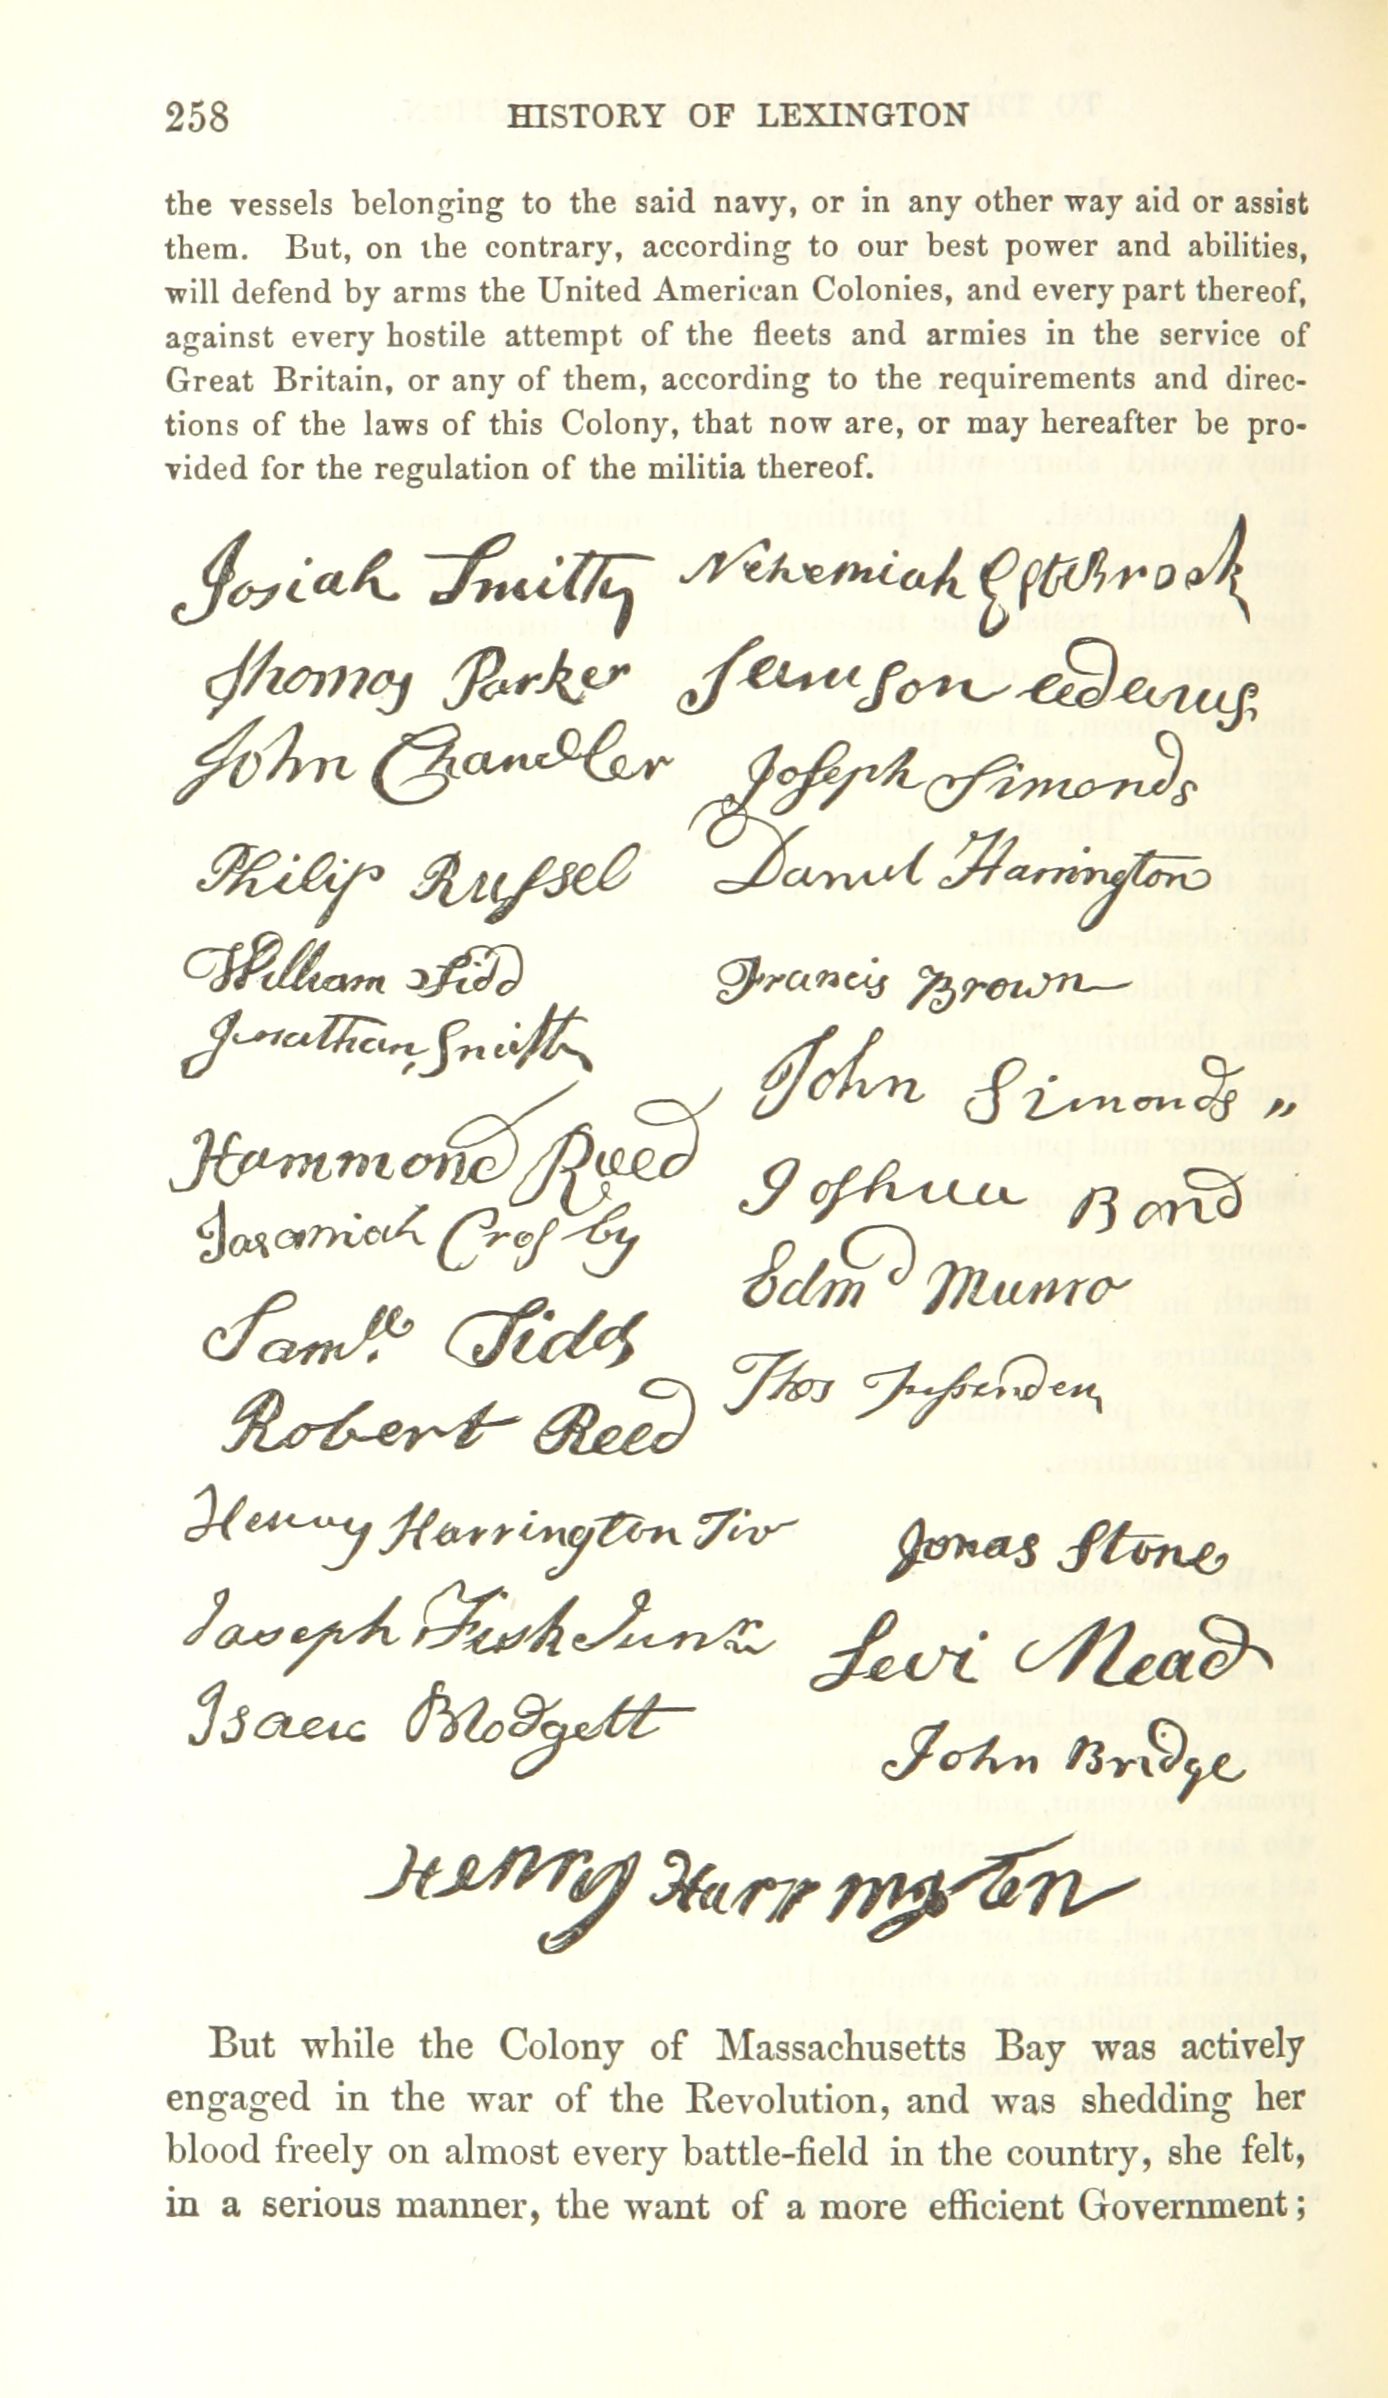 258 HISTORY OF LEXINGTON
the vessels belonging to the said navy, or in any other way aid or assist
them. But, on the contrary, according to our best power and abilities,
will defend by arms the United American Colonies, and every part thereof,
against every hostile attempt of the fleets and armies in the service of
Great Britain, or any of them, according to the requirements and direc-
tions of the laws of this Colony, that now are, or may hereafter be pro-
vided for the regulation of the militia thereof.
Josiah Smith Nehemiah Estabrook
Thomas Parker Samson Adams
John Chandler Joseph Simonds
Philip Russel Daniel Harrington
William Tidd Francis Brown
Jonathan Smith
John Simonds "
Hammond Reed
Joshua Bond
Crosby
Edmd Munro
Samll. Tidd
Thos Fessenden
Robert Reed
Henry Harrington Jonas Stone
Joseph Fisk Junr Levi Mead
Isaac Blodgett
John Bridge
Henry Harrington
But while the Colony of Massachusetts Bay was actively
engaged in the war of the Revolution, and was shedding her
blood freely on almost every battle-field in the country, she felt,
in a serious manner, the want of a more efficient Government;